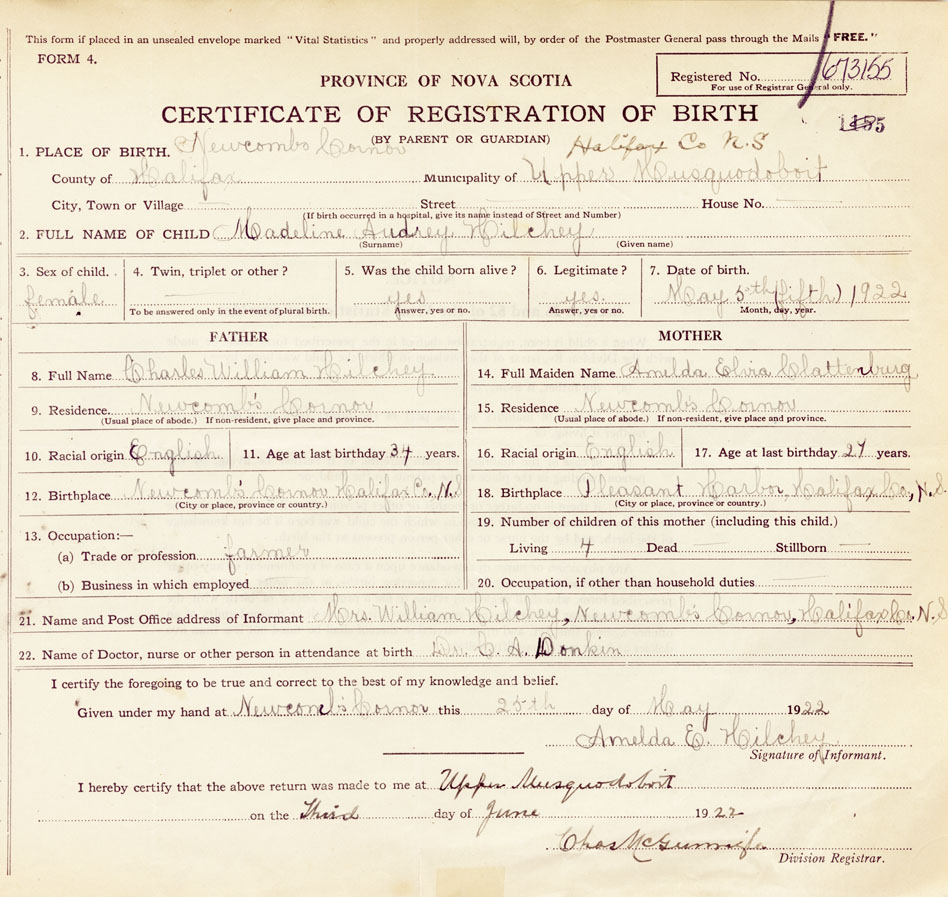 This form if placed in an unsealed envelope marked "Vital Statistics" and properly addressed will, by order of the Postmaster General pass through the Mails "FREE."
FORM 4.
PROVINCE OF NOVA SCOTIA
Registered No. 673155
For use of Registrar General only.
CERTIFICATE OF REGISTRATION OF BIRTH
(BY PARENT OR GUARDIAN)
1. PLACE OF BIRTH. Newcombs Cornor Halifax Co N.S
County of Halifax Municipality of Upper Musquodoboit
City, Town or Village — Street — House No. —
(If birth occurred in a hospital, give its name instead of Street and Number)
2. FULL NAME OF CHILD Madeline Audrey Hilchey
(Surname) (Given name)
3. Sex of child. 4. Twin, triplet or other? 5. Was the child born alive? 6. Legitimate? 7. Date of birth.
female — yes yes. May 5th (fifth) 1922
To be answered only in the event of plural birth. Answer, yes or no. Answer, yes or no. Month, day, year.
FATHER MOTHER
8. Full Name Charles William Hilchey 14. Full Maiden Name Amelda Elvia Clattenburg
9. Residence. Newcomb's Cornor 15. Residence Newcomb's Cornor
(Usual place of abode.) If non-resident, give place and province. (Usual place of abode.) If non-resident, give place and province.
10. Racial origin English 11. Age at last birthday 34 years. 16. Racial origin English 17. Age at last birthday 27 years.
12. Birthplace Newcomb's Cornor Halifax Co. N.S 18. Birthplace Pleasant Harbor, Halifax Co, N.S
(City or place, province or country.) (City or place, province or country.)
13. Occupation:— 19. Number of children of this mother (including this child.)
(a) Trade or profession farmer Living 4 Dead — Stillborn —
(b) Business in which employed — 20. Occupation, if other than household duties —
21. Name and Post Office address of Informant Mrs. William Hilchey, Newcomb's Cornor, Halifax Co. N.S
22. Name of Doctor, nurse or other person in attendance at birth Dr. C. A. Donkin
I certify the foregoing to be true and correct to the best of my knowledge and belief.
Given under my hand at Newcomb's Cornor this 25th day of May 1922
Amelda E. Hilchey
Signature of Informant.
I hereby certify that the above return was made to me at Upper Musquodoboit
on the Third day of June 1922
Chas
Division Registrar.